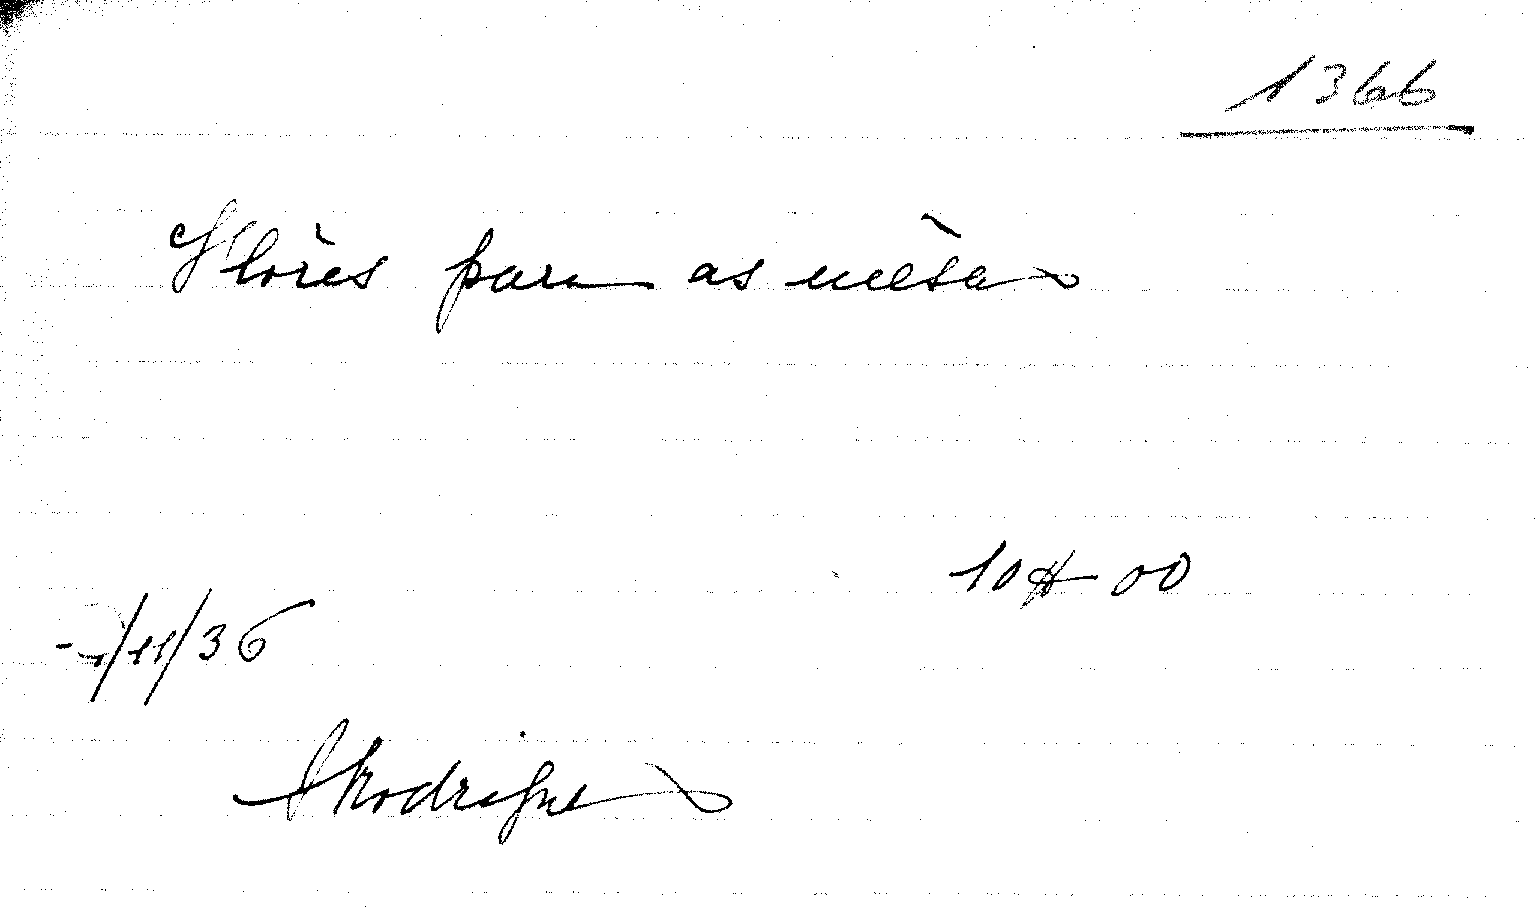 1366
Flòres para as mèsas
10$00
/11/36
Rodrigues